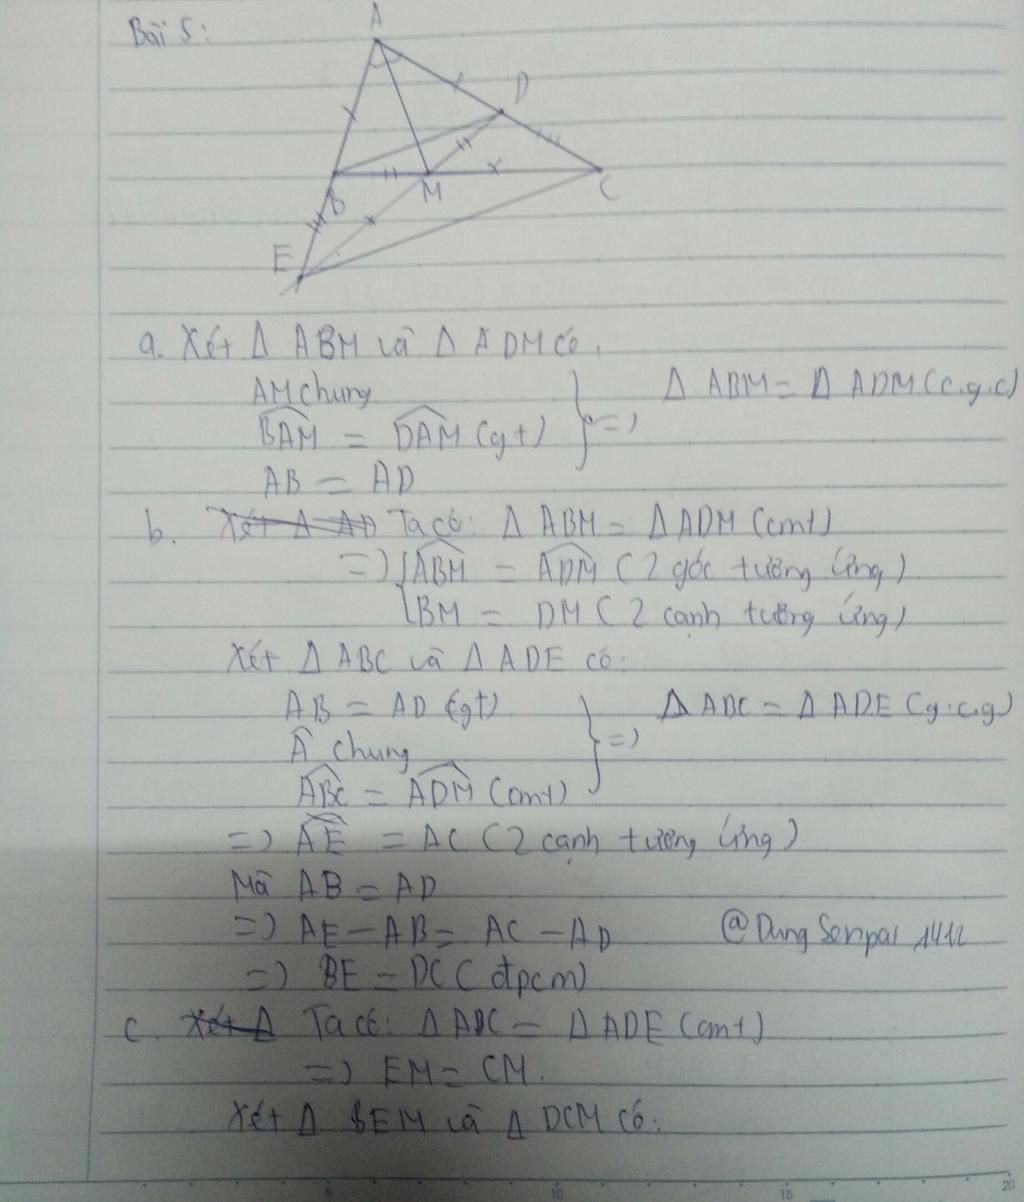 Bài 5:
A
D
B
M
C
E
a. Xét Δ ABM và Δ ADM có:
AM chung
BAM = DAM (gt)
AB = AD
} => Δ ABM = Δ ADM (c.g.c)
b. Xét Δ AD Ta có: Δ ABM = Δ ADM (cmt)
=> { ABM = ADM (2 góc tương ứng)
BM = DM (2 cạnh tương ứng)
Xét Δ ABC và Δ ADE có:
AB = AD (gt)
Â chung
ABC = ADM (cmt)
} => Δ ABC = Δ ADE (g.c.g)
=> AE = AC (2 cạnh tương ứng)
Mà AB = AD
=> AE - AB = AC - AD
@Dung Senpai 1412
=> BE = DC (đpcm)
c. Xét Δ Ta có: Δ ABC = Δ ADE (cmt)
=> EM = CM.
Xét Δ BEM và Δ DCM có:
5 10 15 20